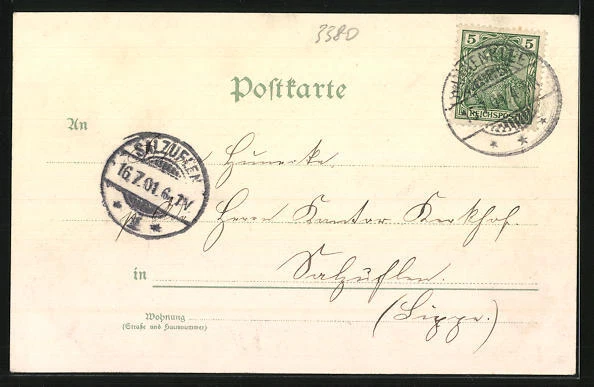 3380
Postkarte
5 5
REICHSPOST
An
SALZUFLEN
16.7.01.6-7V.
Herrn Kantor Kerkhof
in Salzuflen
(Lippe.)
Wohnung
(Straße und Hausnummer)